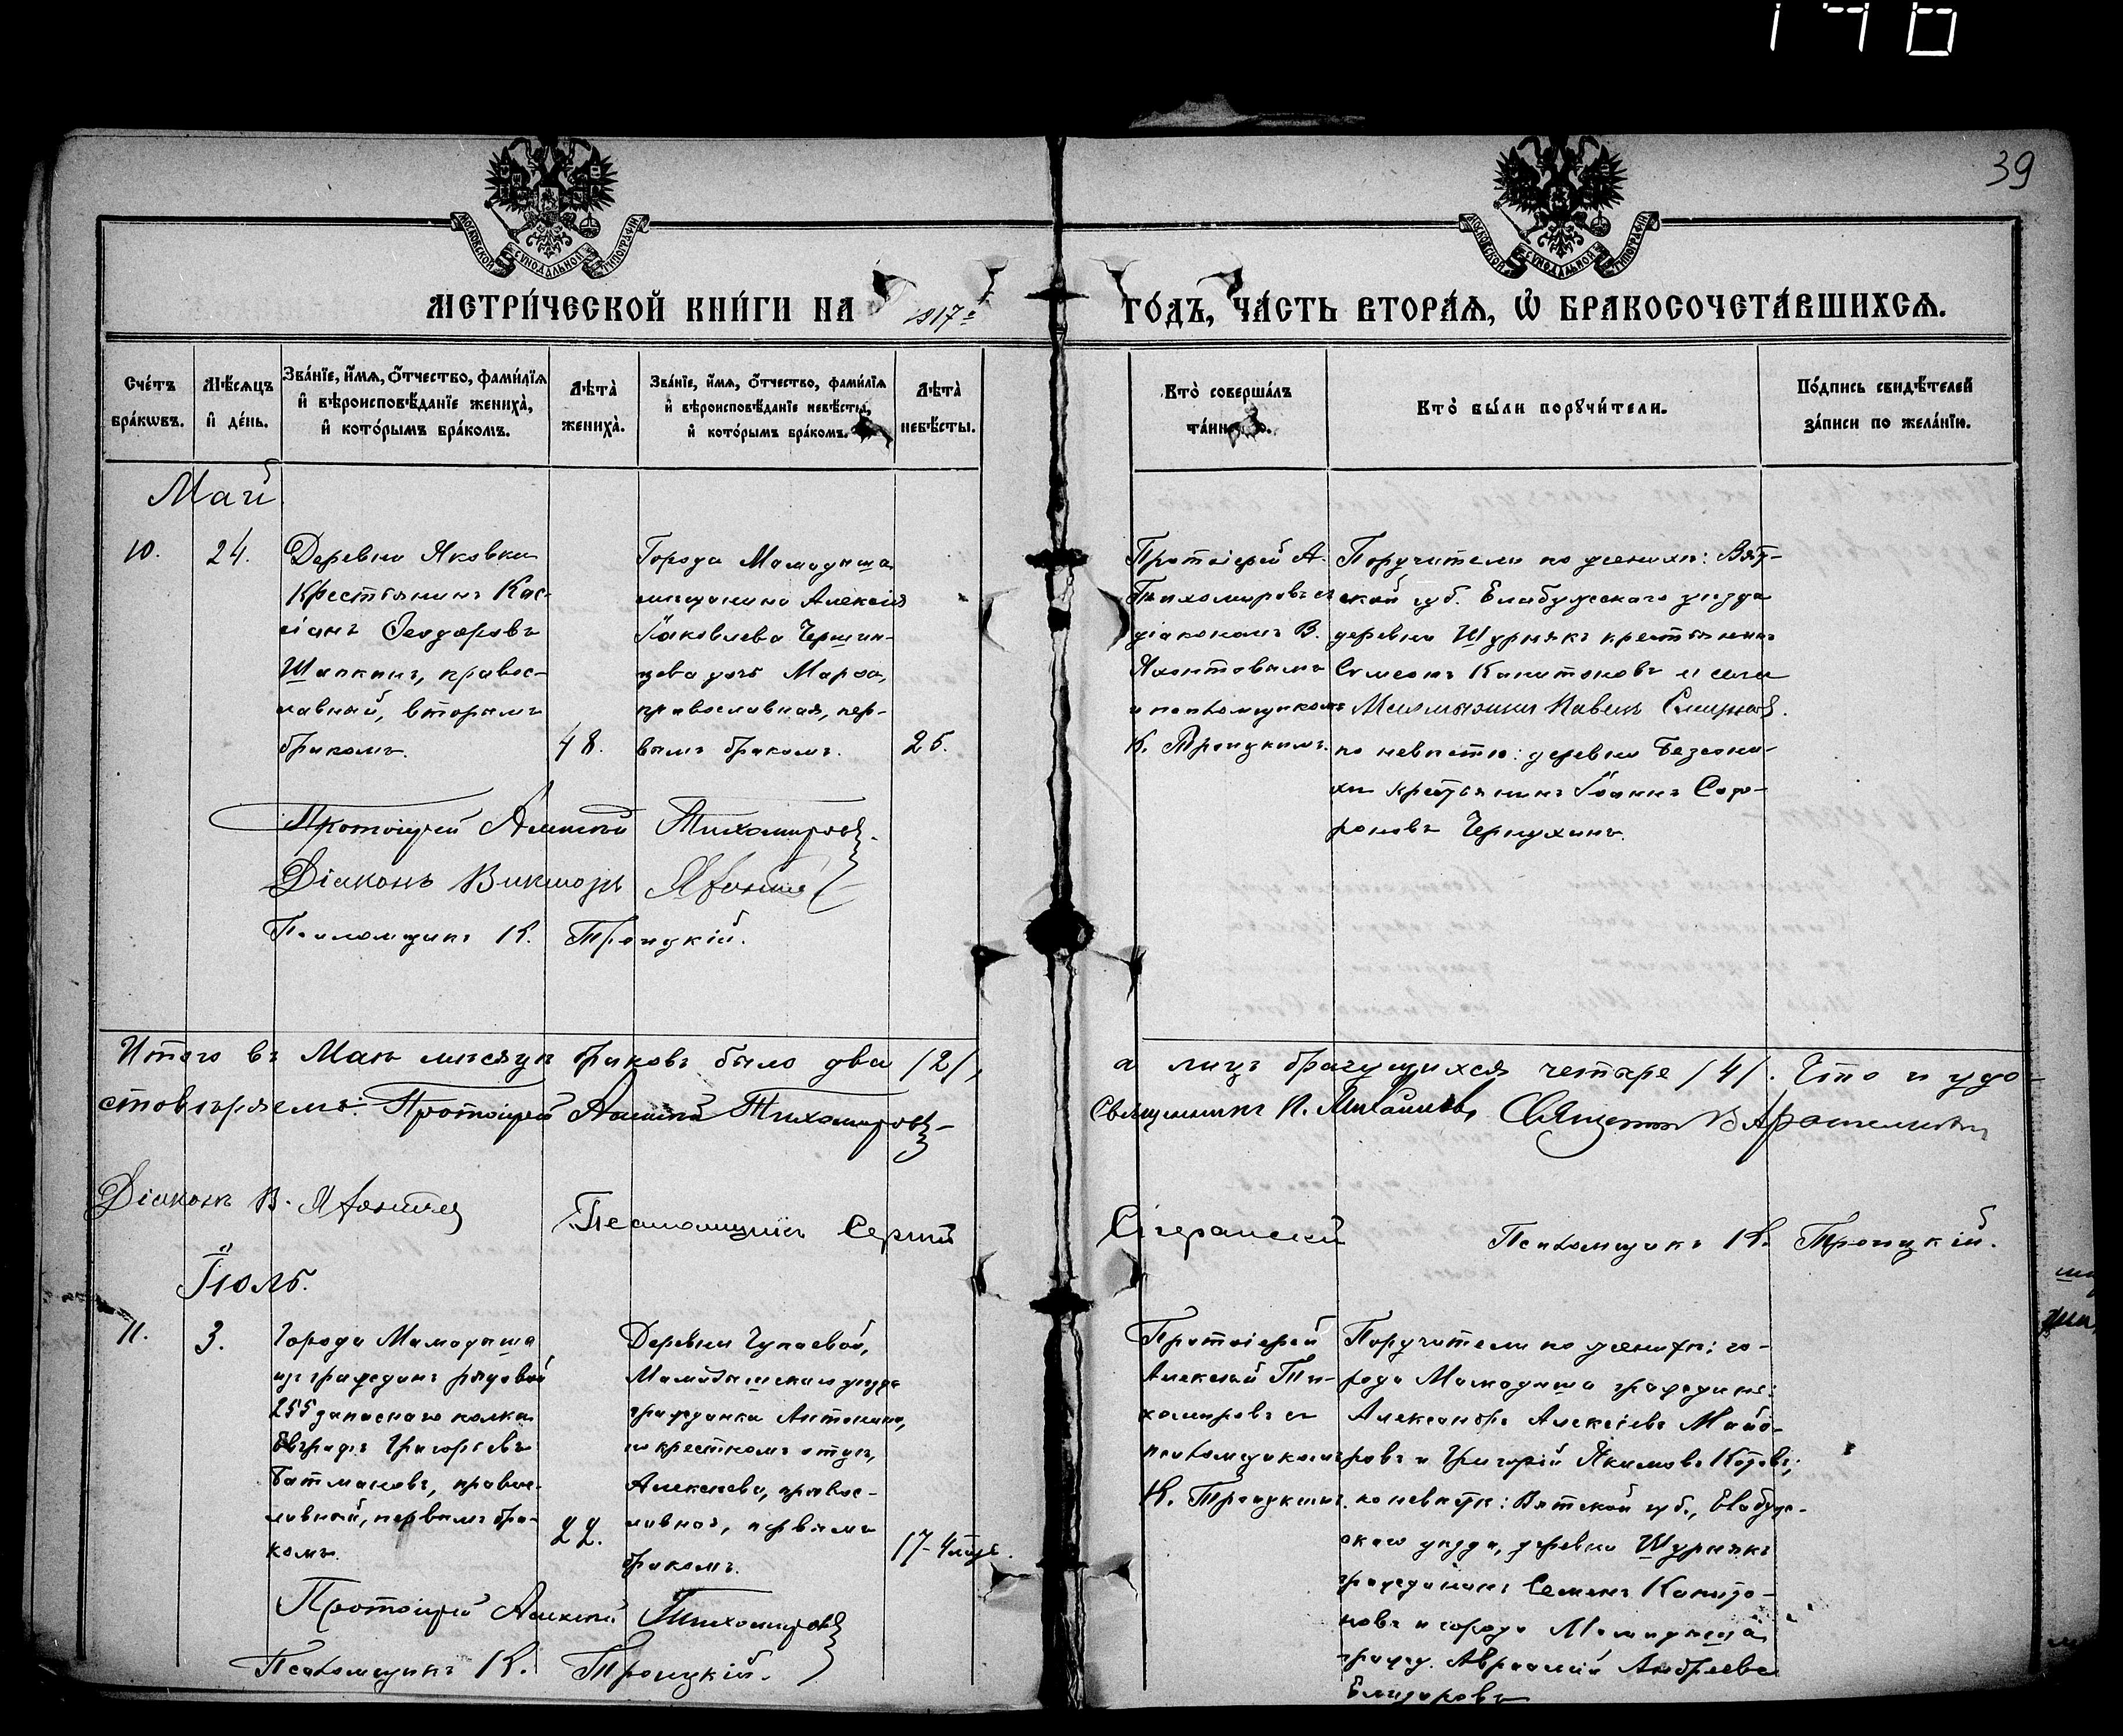 39
МОСКОВСКОЙ СѴНОДАЛЬНОЙ ТИПОГРАФІИ
МОСКОВСКОЙ СѴНОДАЛЬНОЙ ТИПОГРАФІИ
МЕТРИ́ЧЕСКОЙ КНИ́ГИ НА 1917 г. ГО́ДЪ, ЧА́СТЬ ВТОРА́Ѧ, Ѡ҆ БРАКОСОЧЕТА́ВШИХСѦ.
Сче́тъ бра́кѡвъ.
Мѣ́сѧцъ и҆ де́нь.
Зва́нїе, и҆́мѧ, ѻ҆́тчество, фами́лїѧ
и҆ вѣроисповѣ́данїе жениха̀,
и҆ кото́рымъ бра́комъ.
Лѣта̀ жениха̀.
Зва́нїе, и҆́мѧ, ѻ҆́тчество, фами́лїѧ
и҆ вѣроисповѣ́данїе невѣ́сты,
и҆ кото́рымъ бра́комъ.
Лѣта̀ невѣ́сты.
Кто̀ соверша́лъ
Кто̀ бы́ли порꙋчи́тели.
По́дпись свидѣ́телей
за́писи по жела́нїю.
Май
10.
24.
Деревни Яковки
крестьянинъ Кас-
сіанъ Ѳеодоровъ
Шапкинъ, правос-
лавный, вторымъ
бракомъ.
48.
Города Мамадыша
мѣщанина Алексія
Іаковлева
дочь Марѳа,
православная, пер-
вымъ бракомъ.
25.
Протоіерей А.
Тихомировъ съ
діакономъ В.
Яхонтовымъ
и псаломщикомъ
К. Троицкимъ.
Поручители по женихѣ: Вят-
ской губ. Елабужскаго уѣзда
деревни Шурнякъ крестьянинъ
Симеонъ Капитоновъ и села
Павелъ Смирновъ.
по невѣстѣ: деревни
крестьянинъ Іоаннъ Соф-
роновъ Чернухинъ.
Протоіерей Алексій Тихомировъ
Діаконъ Викторъ Яхонтовъ
Псаломщикъ К. Троицкій.
Итого въ Маѣ мѣсяцѣ браковъ было два /2/, а лицъ брачущихся четыре /4/. Что и удо-
стовѣряемъ: Протоіерей Алексій Тихомировъ Священникъ И. Михайловъ, Священникъ В.
Діаконъ В. Яхонтовъ Псаломщикъ Сергій Псаломщикъ К. Троицкій.
Іюль.
11.
3.
Города Мамадыша
изъ гражданъ рядовой
255 запаснаго полка
Евграфъ Григорьевъ
Батмановъ, правос-
лавный, первымъ бра-
комъ.
22.
Деревни Чупаевой,
Мамадышскаго уѣзда
гражданка Антонина,
по крестномъ отцѣ,
Алексѣева, правос-
лавная, первымъ
бракомъ.
17-
Протоіерей
Алексій Ти-
хомировъ съ
псаломщикомъ
К. Троицкимъ.
Поручители по женихѣ: го-
рода Мамадыша граждане:
Александръ Алексіевъ Майо-
ровъ и Григорій Якимовъ Котовъ;
по невѣстѣ: Вятской губ., Елабуж-
скаго уѣзда, деревни Шурнякъ
гражданинъ Семенъ Капито-
новъ и города Мамадыша
гражд. Авраамій Андреевъ
Протоіерей Алексій Тихомировъ
Псаломщикъ К. Троицкій.